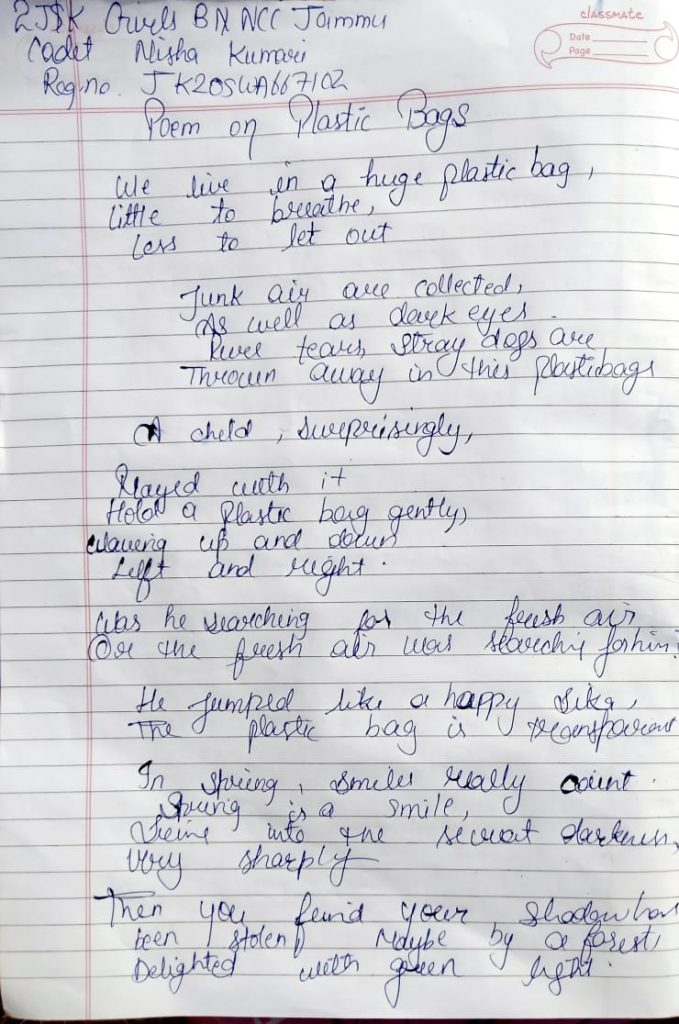 2J&K Girls BN NCC Jammu
Cadet Nisha Kumari
Reg no. JK20SWA667102
classmate
Date
Page
Poem on Plastic Bags
We live in a huge plastic bag,
little to breathe,
Less to let out
Junk air are collected,
As well as dark eyes.
Pure tears, stray dogs are
Thrown away in this plasticbags
A child, surprisingly,
Played with it
Hold a plastic bag gently,
Waving up and down
Left and right.
Was he searching for the fresh air
Or the fresh air was searching forhim.
He jumped like a happy Sika,
The plastic bag is transparent
In spring, smiles really count.
Spring is a smile,
into the secret darkness,
Very sharply
Then you find your shadow has
been stolen, Maybe by a forest,
Delighted with green light.